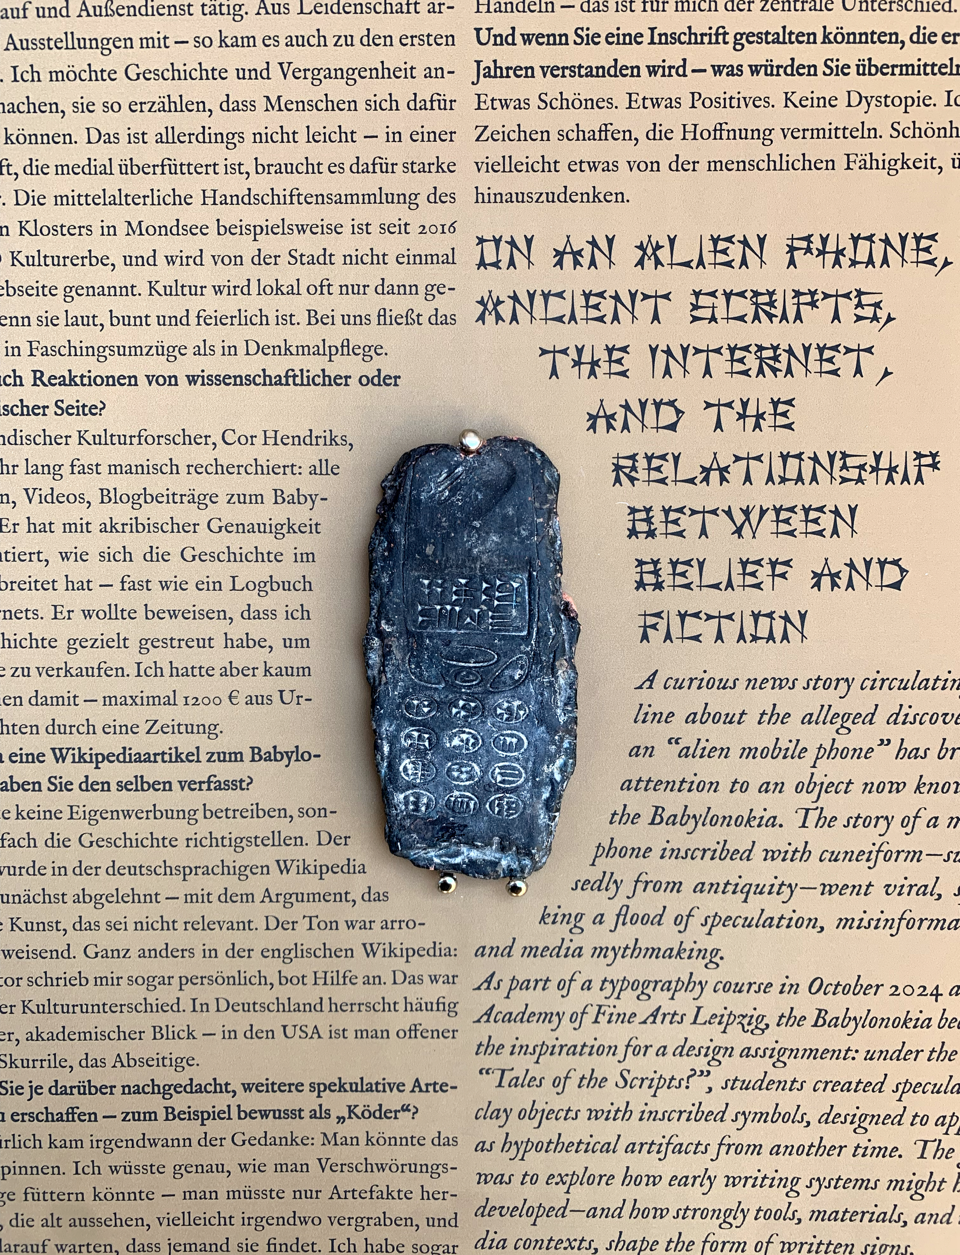 auf und Außendienst tätig. Aus Leidenschaft ar-
Ausstellungen mit – so kam es auch zu den ersten
. Ich möchte Geschichte und Vergangenheit an-
machen, sie so erzählen, dass Menschen sich dafür
können. Das ist allerdings nicht leicht – in einer
ft, die medial überfüttert ist, braucht es dafür starke
. Die mittelalterliche Handschiftensammlung des
n Klosters in Mondsee beispielsweise ist seit 2016
Kulturerbe, und wird von der Stadt nicht einmal
ebseite genannt. Kultur wird lokal oft nur dann ge-
enn sie laut, bunt und feierlich ist. Bei uns fließt das
in Faschingsumzüge als in Denkmalpflege.
uch Reaktionen von wissenschaftlicher oder
ischer Seite?
ndischer Kulturforscher, Cor Hendriks,
hr lang fast manisch recherchiert: alle
n, Videos, Blogbeiträge zum Baby-
Er hat mit akribischer Genauigkeit
ntiert, wie sich die Geschichte im
breitet hat – fast wie ein Logbuch
rnets. Er wollte beweisen, dass ich
hichte gezielt gestreut habe, um
e zu verkaufen. Ich hatte aber kaum
en damit – maximal 1200 € aus Ur-
hten durch eine Zeitung.
eine Wikipediaartikel zum Babylo-
aben Sie den selben verfasst?
te keine Eigenwerbung betreiben, son-
fach die Geschichte richtigstellen. Der
wurde in der deutschsprachigen Wikipedia
unächst abgelehnt – mit dem Argument, das
e Kunst, das sei nicht relevant. Der Ton war arro-
weisend. Ganz anders in der englischen Wikipedia:
tor schrieb mir sogar persönlich, bot Hilfe an. Das war
er Kulturunterschied. In Deutschland herrscht häufig
er, akademischer Blick – in den USA ist man offener
Skurrile, das Abseitige.
Sie je darüber nachgedacht, weitere spekulative Arte-
u erschaffen – zum Beispiel bewusst als „Köder“?
ürlich kam irgendwann der Gedanke: Man könnte das
pinnen. Ich wüsste genau, wie man Verschwörungs-
ge füttern könnte – man müsste nur Artefakte her-
, die alt aussehen, vielleicht irgendwo vergraben, und
darauf warten, dass jemand sie findet. Ich habe sogar
Handeln – das ist für mich der zentrale Unterschied.
Und wenn Sie eine Inschrift gestalten könnten, die er
Jahren verstanden wird – was würden Sie übermitteln
Etwas Schönes. Etwas Positives. Keine Dystopie. Ic
Zeichen schaffen, die Hoffnung vermitteln. Schönh
vielleicht etwas von der menschlichen Fähigkeit, ü
hinauszudenken.
ON AN ALIEN PHONE,
ANCIENT SCRIPTS,
THE INTERNET,
AND THE
RELATIONSHIP
BETWEEN
BELIEF AND
FICTION
A curious news story circulatin
line about the alleged discove
an “alien mobile phone” has br
attention to an object now know
the Babylonokia. The story of a m
phone inscribed with cuneiform—su
sedly from antiquity—went viral, s
king a flood of speculation, misinforma
and media mythmaking.
As part of a typography course in October 2024 a
Academy of Fine Arts Leipzig, the Babylonokia bec
the inspiration for a design assignment: under the
“Tales of the Scripts?”, students created specula
clay objects with inscribed symbols, designed to app
as hypothetical artifacts from another time. The
was to explore how early writing systems might h
developed—and how strongly tools, materials, and
dia contexts, shape the form of written signs.